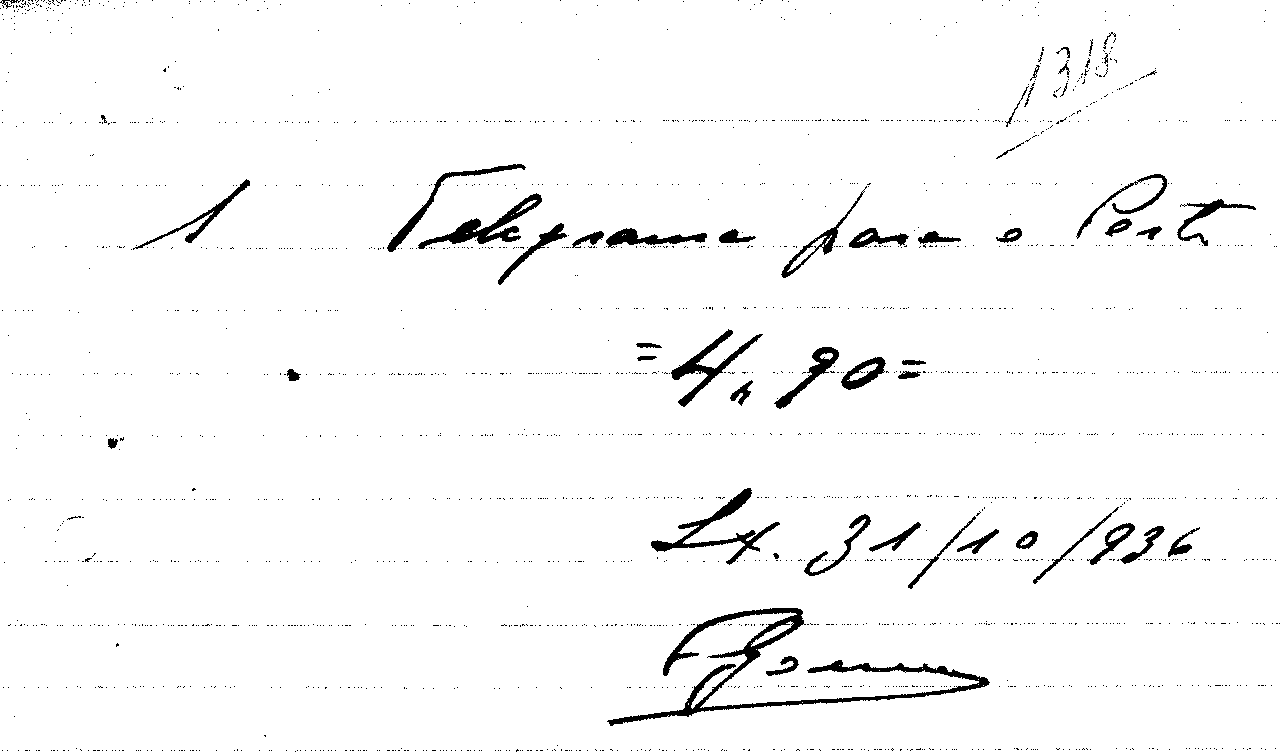 1318
1 Telegrama para o Porto
= 4,90 =
Lx. 31/10/936